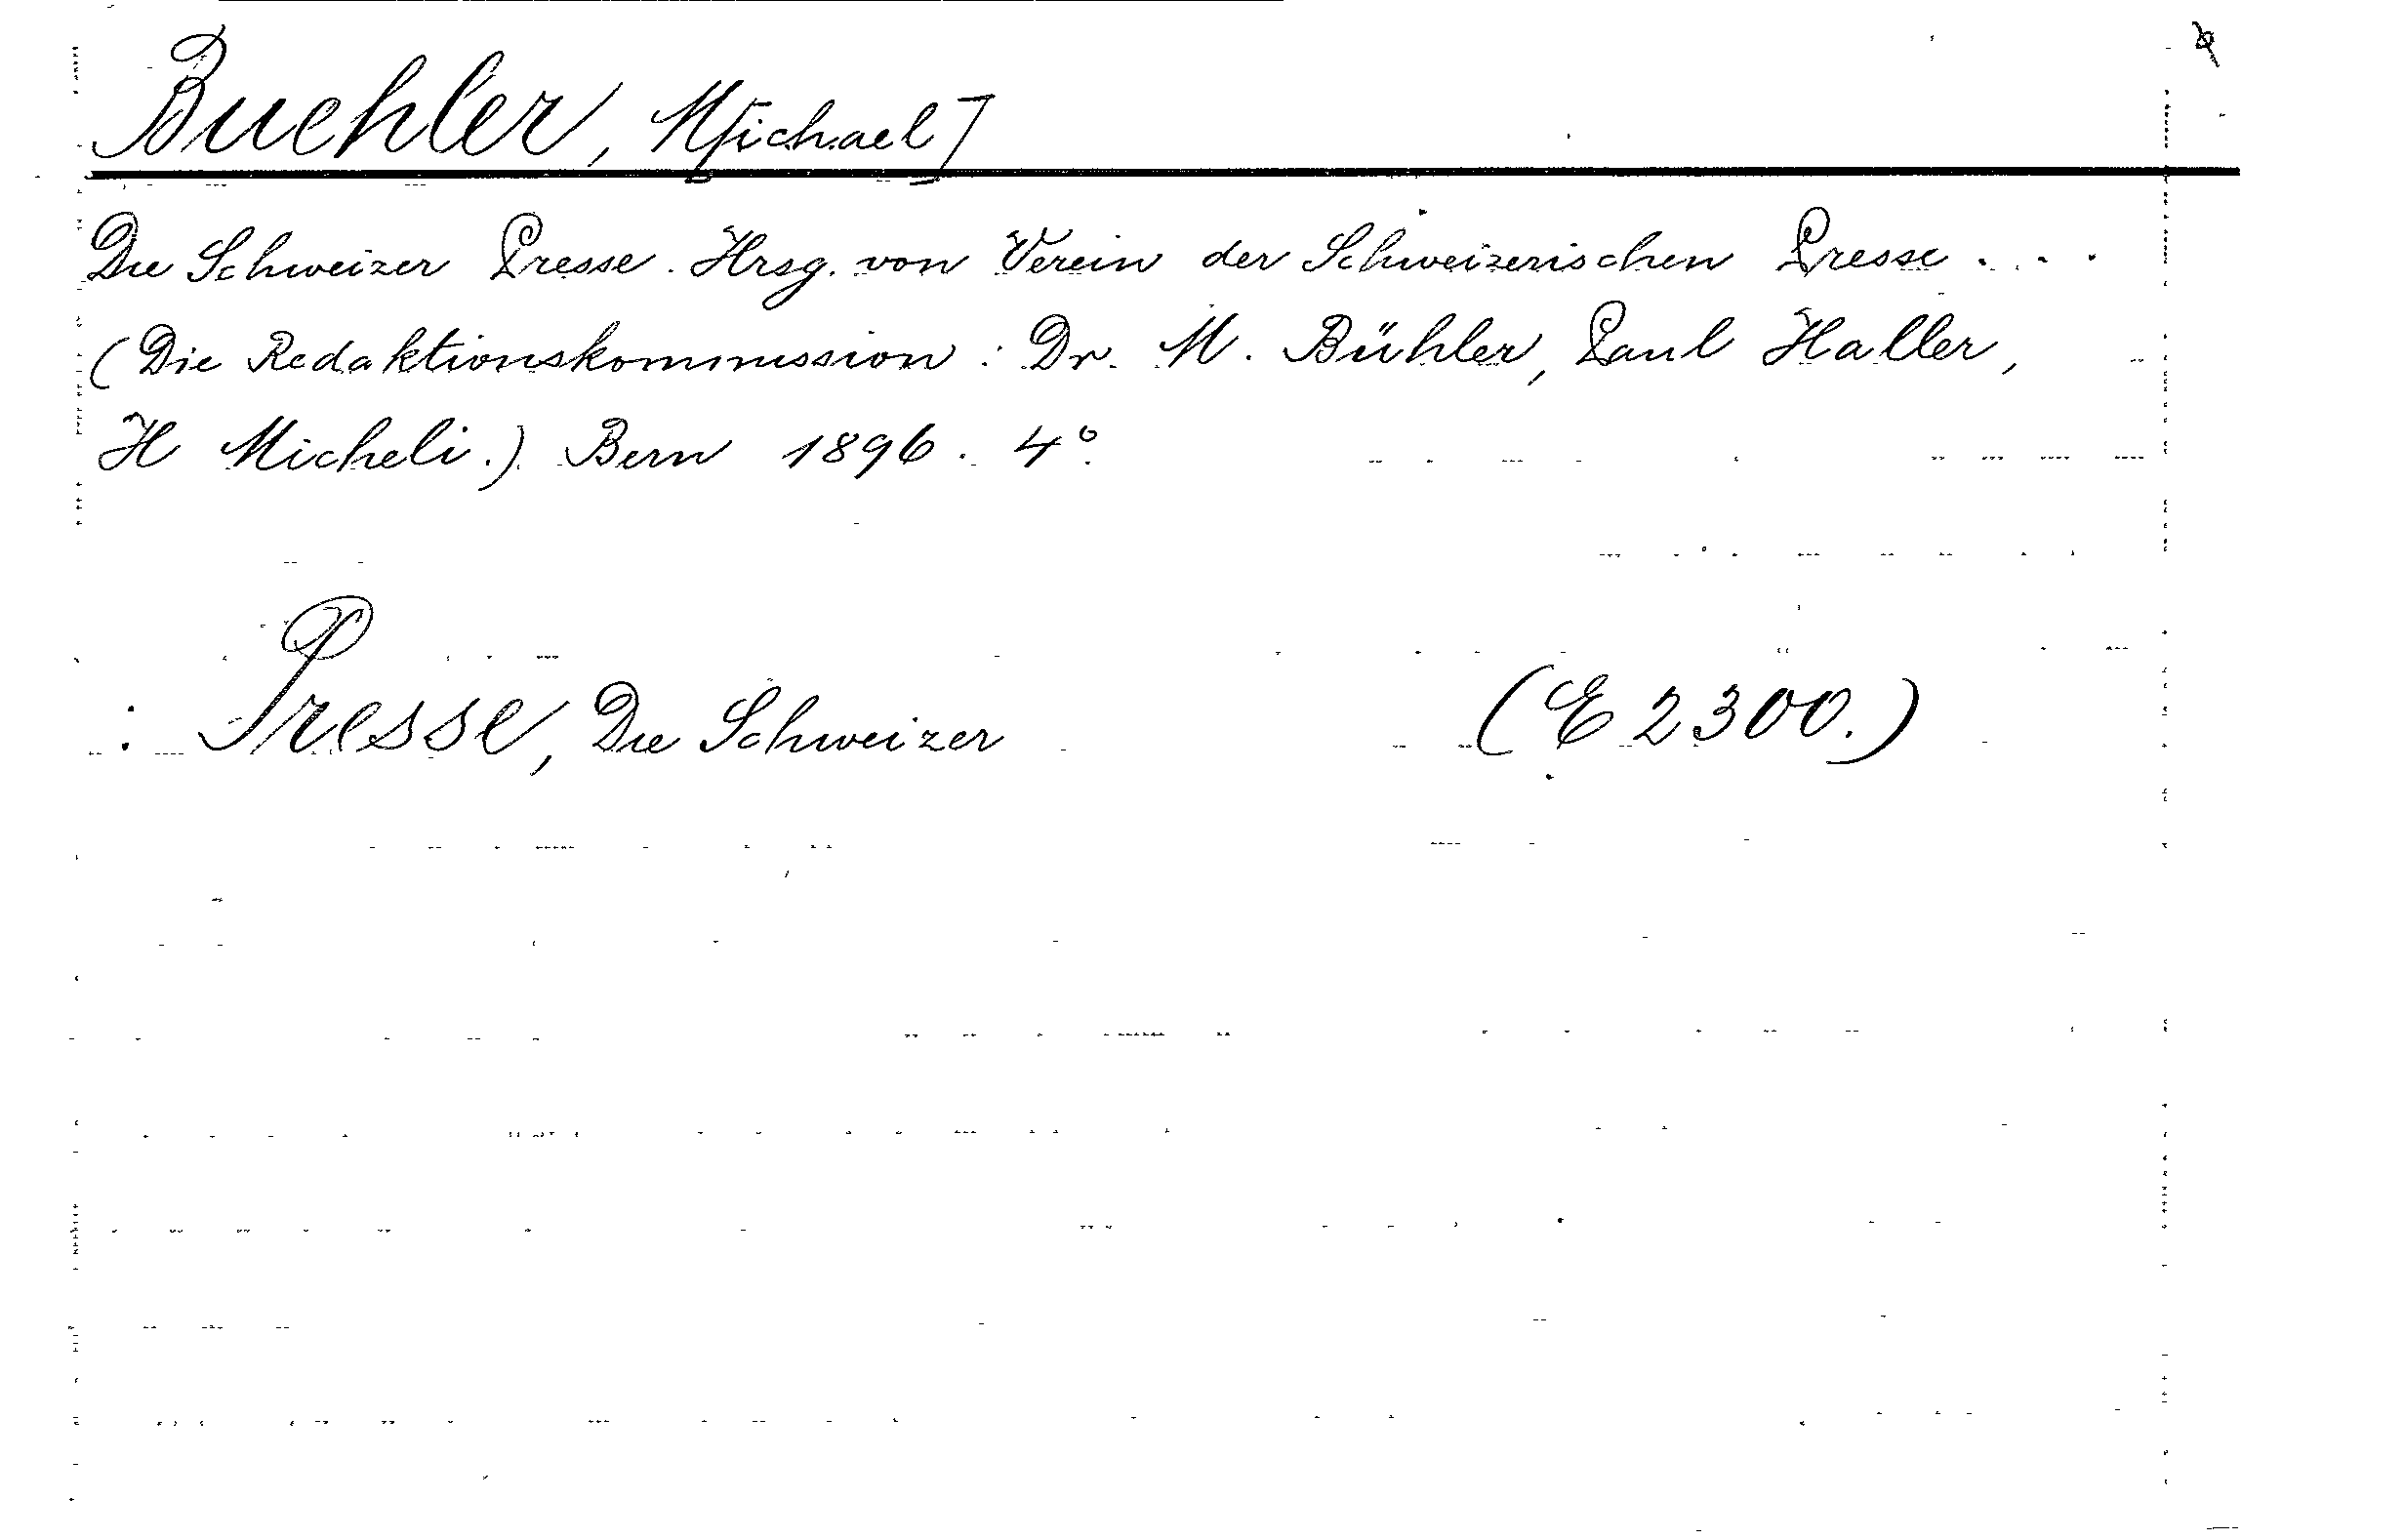 Buehler, M[ichael]
Die Schweizer Presse. Hrsg. von Verein der Schweizerischen Presse....
(Die Redaktionskommission: Dr. M. Bühler, Paul Haller,
H Micheli.) Bern 1896. 4°.
: Presse, Die Schweizer (E 2300.)